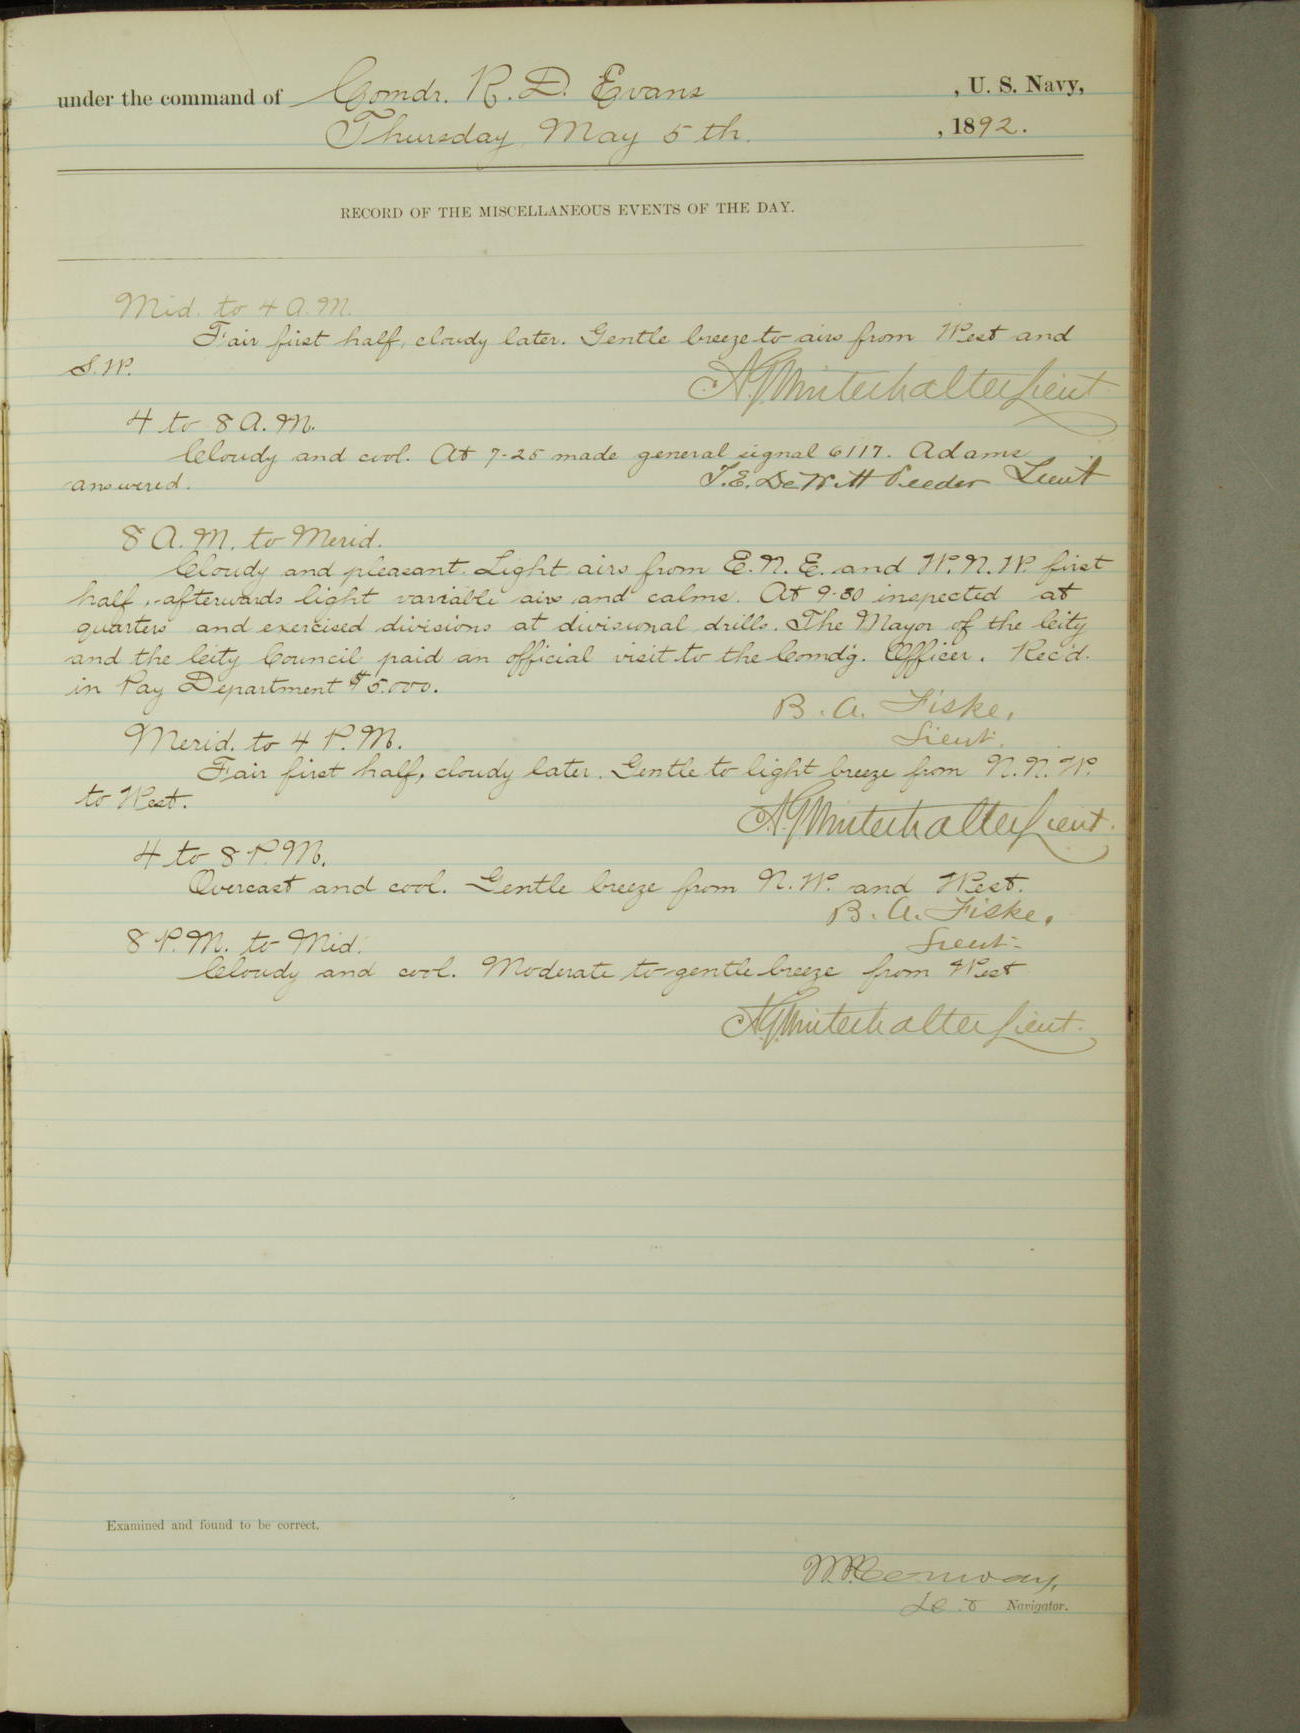 under the command of Comdr. R. D. Evans , U. S. Navy,
Thursday, May 5th. , 1892.
RECORD OF THE MISCELLANEOUS EVENTS OF THE DAY.
Mid. to 4 A.M.
Fair first half, cloudy later. Gentle breeze to airs from West and
S.W.
A.G. Winterhalter Lieut
4 to 8 A.M.
Cloudy and cool. At 7-25 made general signal 6117. Adams
answered. T.E. DeWitt Veeder Lieut
8 A.M. to Merid.
Cloudy and pleasant. Light airs from E.N.E. and W.N.W. first
half, afterwards light variable airs and calms. At 9-30 inspected at
quarters and exercised divisions at divisional drills. The Mayor of the City
and the City Council paid an official visit to the Comd'g. Officer. Rec'd.
in Pay Department $5.000.
B. A. Fiske,
Lieut.
Merid. to 4 P.M.
Fair first half, cloudy later. Gentle to light breeze from N.N.W.
to West.
A.G. Winterhalter Lieut.
4 to 8 P.M.
Overcast and cool. Gentle breeze from N.W. and West.
B. A. Fiske,
Lieut.
8 P.M. to Mid.
Cloudy and cool. Moderate to gentle breeze from West
A.G. Winterhalter Lieut.
Examined and found to be correct.
Conway,
Navigator.